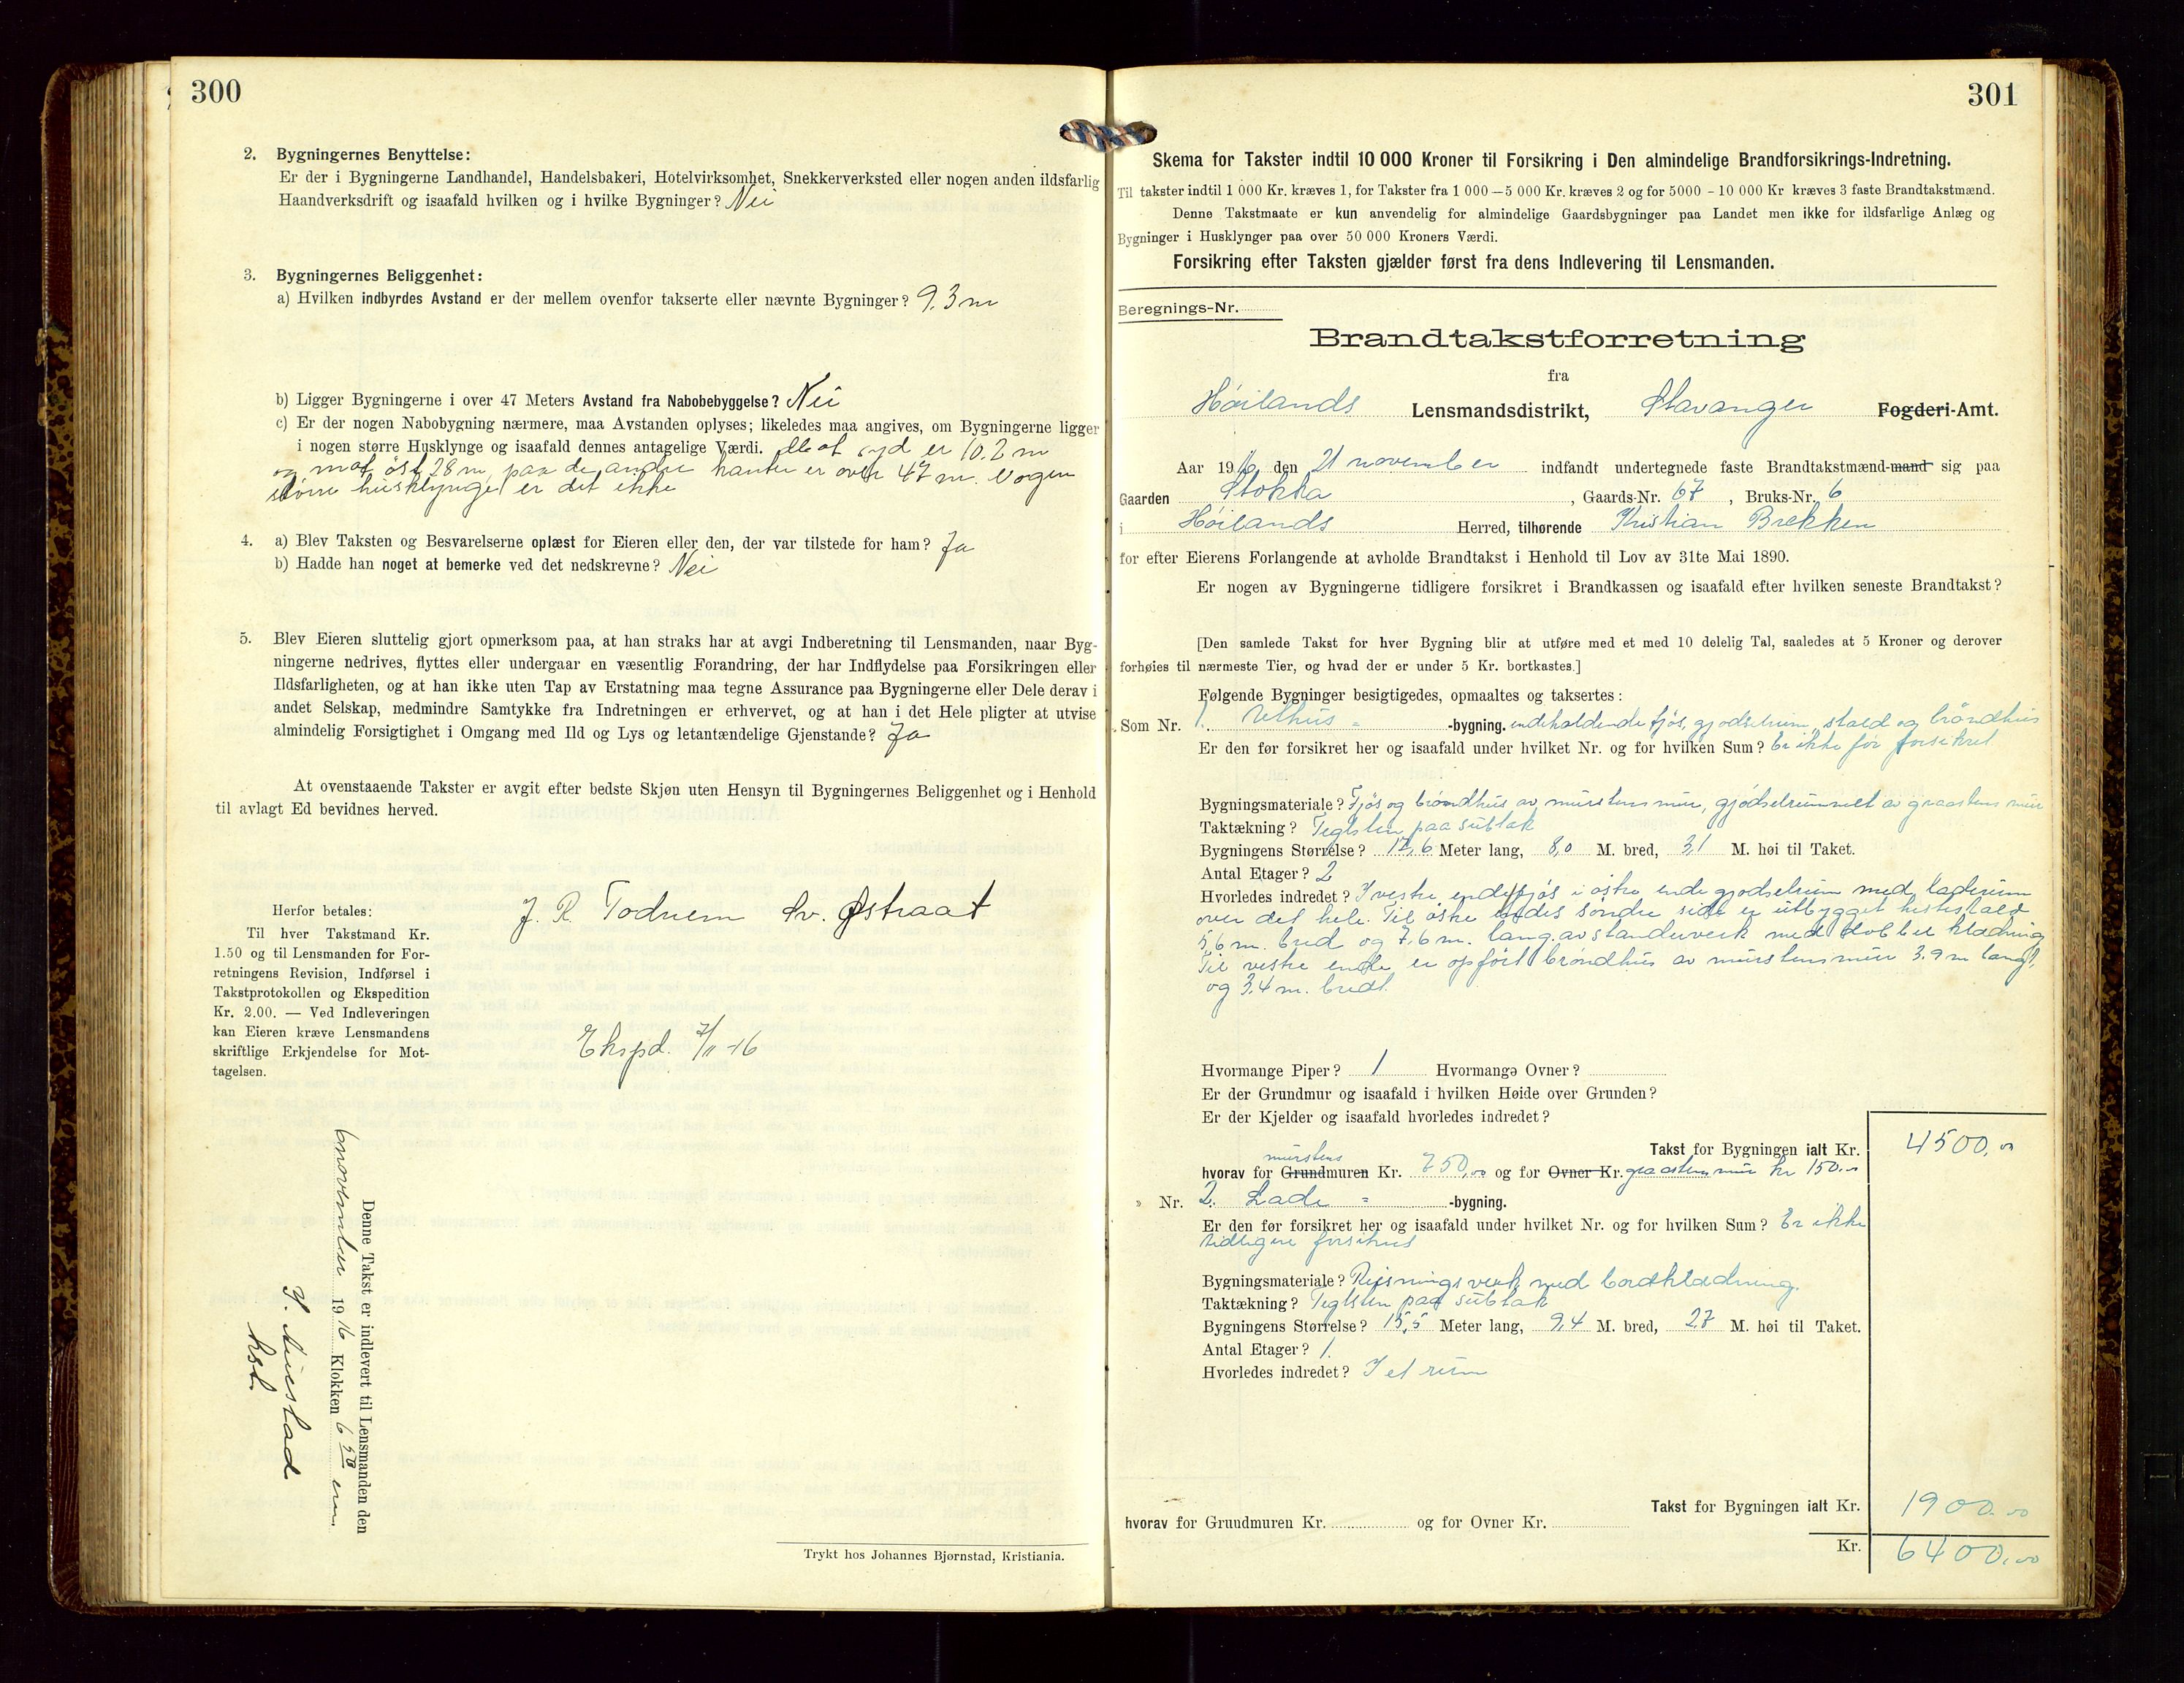 300
2. Bygningernes Benyttelse:
Er der i Bygningerne Landhandel, Handelsbakeri, Hotelvirksomhet, Snekkerverksted eller nogen anden ildsfarlig
Haandverksdrift og isaafald hvilken og i hvilke Bygninger? Nei
3. Bygningernes Beliggenhet:
a) Hvilken indbyrdes Avstand er der mellem ovenfor takserte eller nævnte Bygninger? 9.3 m
b) Ligger Bygningerne i over 47 Meters Avstand fra Nabobebyggelse? Nei
c) Er der nogen Nabobygning nærmere, maa Avstanden oplyses; likeledes maa angives, om Bygningerne ligger
i nogen større Husklynge og isaafald dennes antagelige Værdi. Mot syd er 10.2 m
og mot öst 28 m, paa de andre kanter er over 47 m. Nogen
större husklynge er det ikke
4. a) Blev Taksten og Besvarelserne oplæst for Eieren eller den, der var tilstede for ham? Ja
b) Hadde han noget at bemerke ved det nedskrevne? Nei
5. Blev Eieren sluttelig gjort opmerksom paa, at han straks har at avgi Indberetning til Lensmanden, naar Byg-
ningerne nedrives, flyttes eller undergaar en væsentlig Forandring, der har Indflydelse paa Forsikringen eller
Ildsfarligheten, og at han ikke uten Tap av Erstatning maa tegne Assurance paa Bygningerne eller Dele derav i
andet Selskap, medmindre Samtykke fra Indretningen er erhvervet, og at han i det Hele pligter at utvise
almindelig Forsigtighet i Omgang med Ild og Lys og letantændelige Gjenstande? Ja
At ovenstaaende Takster er avgit efter bedste Skjøn uten Hensyn til Bygningernes Beliggenhet og i Henhold
til avlagt Ed bevidnes herved.
J. R. Todnem Sv. Østraat
Herfor betales:
Til hver Takstmand Kr.
1.50 og til Lensmanden for For-
retningens Revision, Indførsel i
Takstprotokollen og Ekspedition
Kr. 2.00. — Ved Indleveringen
kan Eieren kræve Lensmandens
skriftlige Erkjendelse for Mot-
tagelsen.
Ekspd. 7/11-16
Denne Takst er indlevert til Lensmanden den
6 november 1916 Klokken 6 50 em.
kst.
Trykt hos Johannes Bjørnstad, Kristiania.
301
Skema for Takster indtil 10 000 Kroner til Forsikring i Den almindelige Brandforsikrings-Indretning.
Til takster indtil 1 000 Kr. kræves 1, for Takster fra 1 000 — 5 000 Kr. kræves 2 og for 5000 - 10 000 Kr kræves 3 faste Brandtakstmænd.
Denne Takstmaate er kun anvendelig for almindelige Gaardsbygninger paa Landet men ikke for ildsfarlige Anlæg og
Bygninger i Husklynger paa over 50 000 Kroners Værdi.
Forsikring efter Taksten gjælder først fra dens Indlevering til Lensmanden.
Beregnings-Nr.
Brandtakstforretning
fra
Höilands Lensmandsdistrikt, Stavanger Fogderi-Amt.
Aar 1916 den 21 november indfandt undertegnede faste Brandtakstmænd-mand sig paa
Gaarden Stokka, Gaards-Nr. 67, Bruks-Nr. 6
i Höilands Herred, tilhørende Kristian Brekken
for efter Eierens Forlangende at avholde Brandtakst i Henhold til Lov av 31te Mai 1890.
Er nogen av Bygningerne tidligere forsikret i Brandkassen og isaafald efter hvilken seneste Brandtakst?
[Den samlede Takst for hver Bygning blir at utføre med et med 10 delelig Tal, saaledes at 5 Kroner og derover
forhøies til nærmeste Tier, og hvad der er under 5 Kr. bortkastes.]
Følgende Bygninger besigtigedes, opmaaltes og taksertes:
Som Nr. 1. Uthus = -bygning. indeholdende fjös, gjödselrum, stald og bröndhus
Er den før forsikret her og isaafald under hvilket Nr. og for hvilken Sum? Er ikke för forsikret
Bygningsmateriale? Fjös og bröndhus av murstens mur, gjödselrummet av graastens mur
Taktækning? Teglsten paa sutak
Bygningens Størrelse? 12,6 Meter lang, 8,0 M. bred, 3,1 M. høi til Taket.
Antal Etager? 2
Hvorledes indredet? I vestre ende fjös i östre ende gjödselrum med laderum
over det hele. Til östre endes söndre side er utbygget hestestald
5,6 m. bred og 7,6 m. lang av standerverk med dobbel klædning
Til vestre ende er opfört bröndhus av murstens mur 3.9 m langt,
og 3.4 m. bredt.
Hvormange Piper? 1 Hvormange Ovner?
Er der Grundmur og isaafald i hvilken Høide over Grunden?
Er der Kjelder og isaafald hvorledes indredet?
Takst for Bygningen ialt Kr. 4500,00
murstens
hvorav for Grundmuren Kr. 750,00 og for Ovner Kr. graastens mur kr 150.00
» Nr. 2. Lade = -bygning.
Er den før forsikret her og isaafald under hvilket Nr. og for hvilken Sum? Er ikke
tidligere forsikret
Bygningsmateriale? Reisningsverk med bordklædning.
Taktækning? Teglsten paa sutak
Bygningens Størrelse? 15,5 Meter lang, 9,4 M. bred, 2,7 M. høi til Taket.
Antal Etager? 1.
Hvorledes indredet? I et rum
Takst for Bygningen ialt Kr. 1900.00
hvorav for Grundmuren Kr. og for Ovner Kr.
Kr. 6400,00